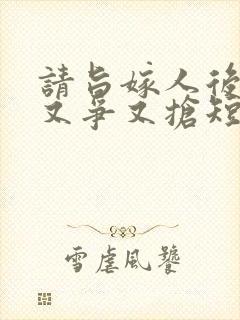 請旨嫁人後
又爭又搶短
雪虐風饕